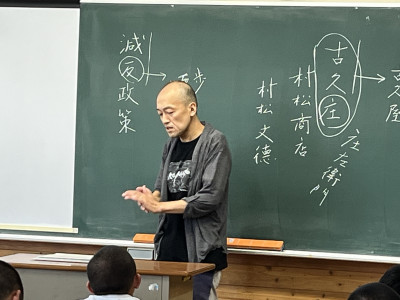 久屋
古久庄
庄左衛門
村松商店
村松文徳
歩
減反政策